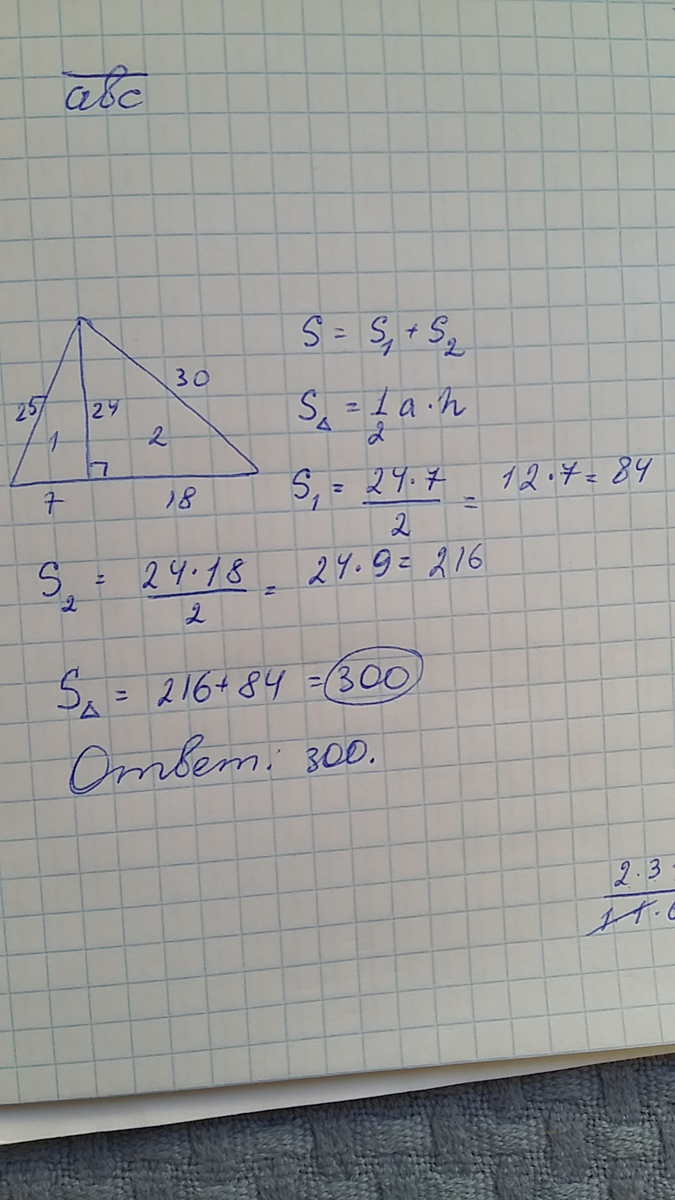 a̅b̅c̅
S = S₁ + S₂
25 24 30
1 2
7 18
S_Δ = 1/2 a · h
S₁ = 24 · 7 / 2 = 12 · 7 = 84
S₂ = 24 · 18 / 2 = 24 · 9 = 216
S_Δ = 216 + 84 = 300
Ответ: 300.
2 · 3 ·